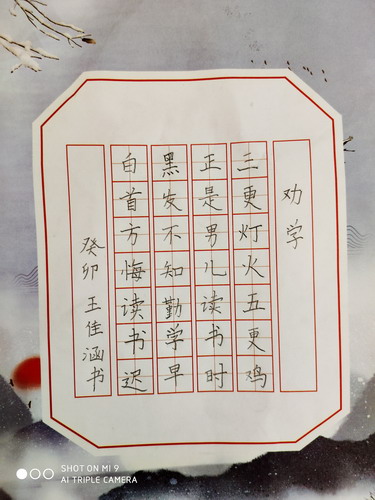 劝学
三更灯火五更鸡
正是男儿读书时
黑发不知勤学早
白首方悔读书迟
癸卯 王佳涵书
SHOT ON MI 9
AI TRIPLE CAMERA